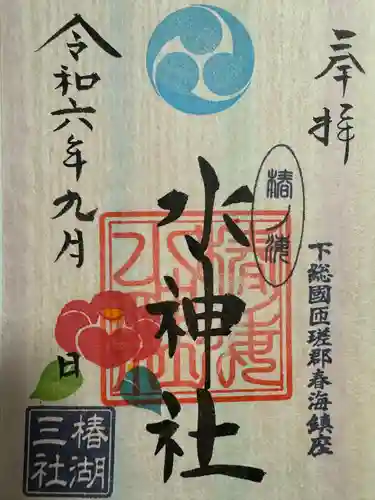 三奉拝
椿ノ海
下総國匝瑳郡春海鎮座
水神社
令和六年九月
日
椿湖
三社